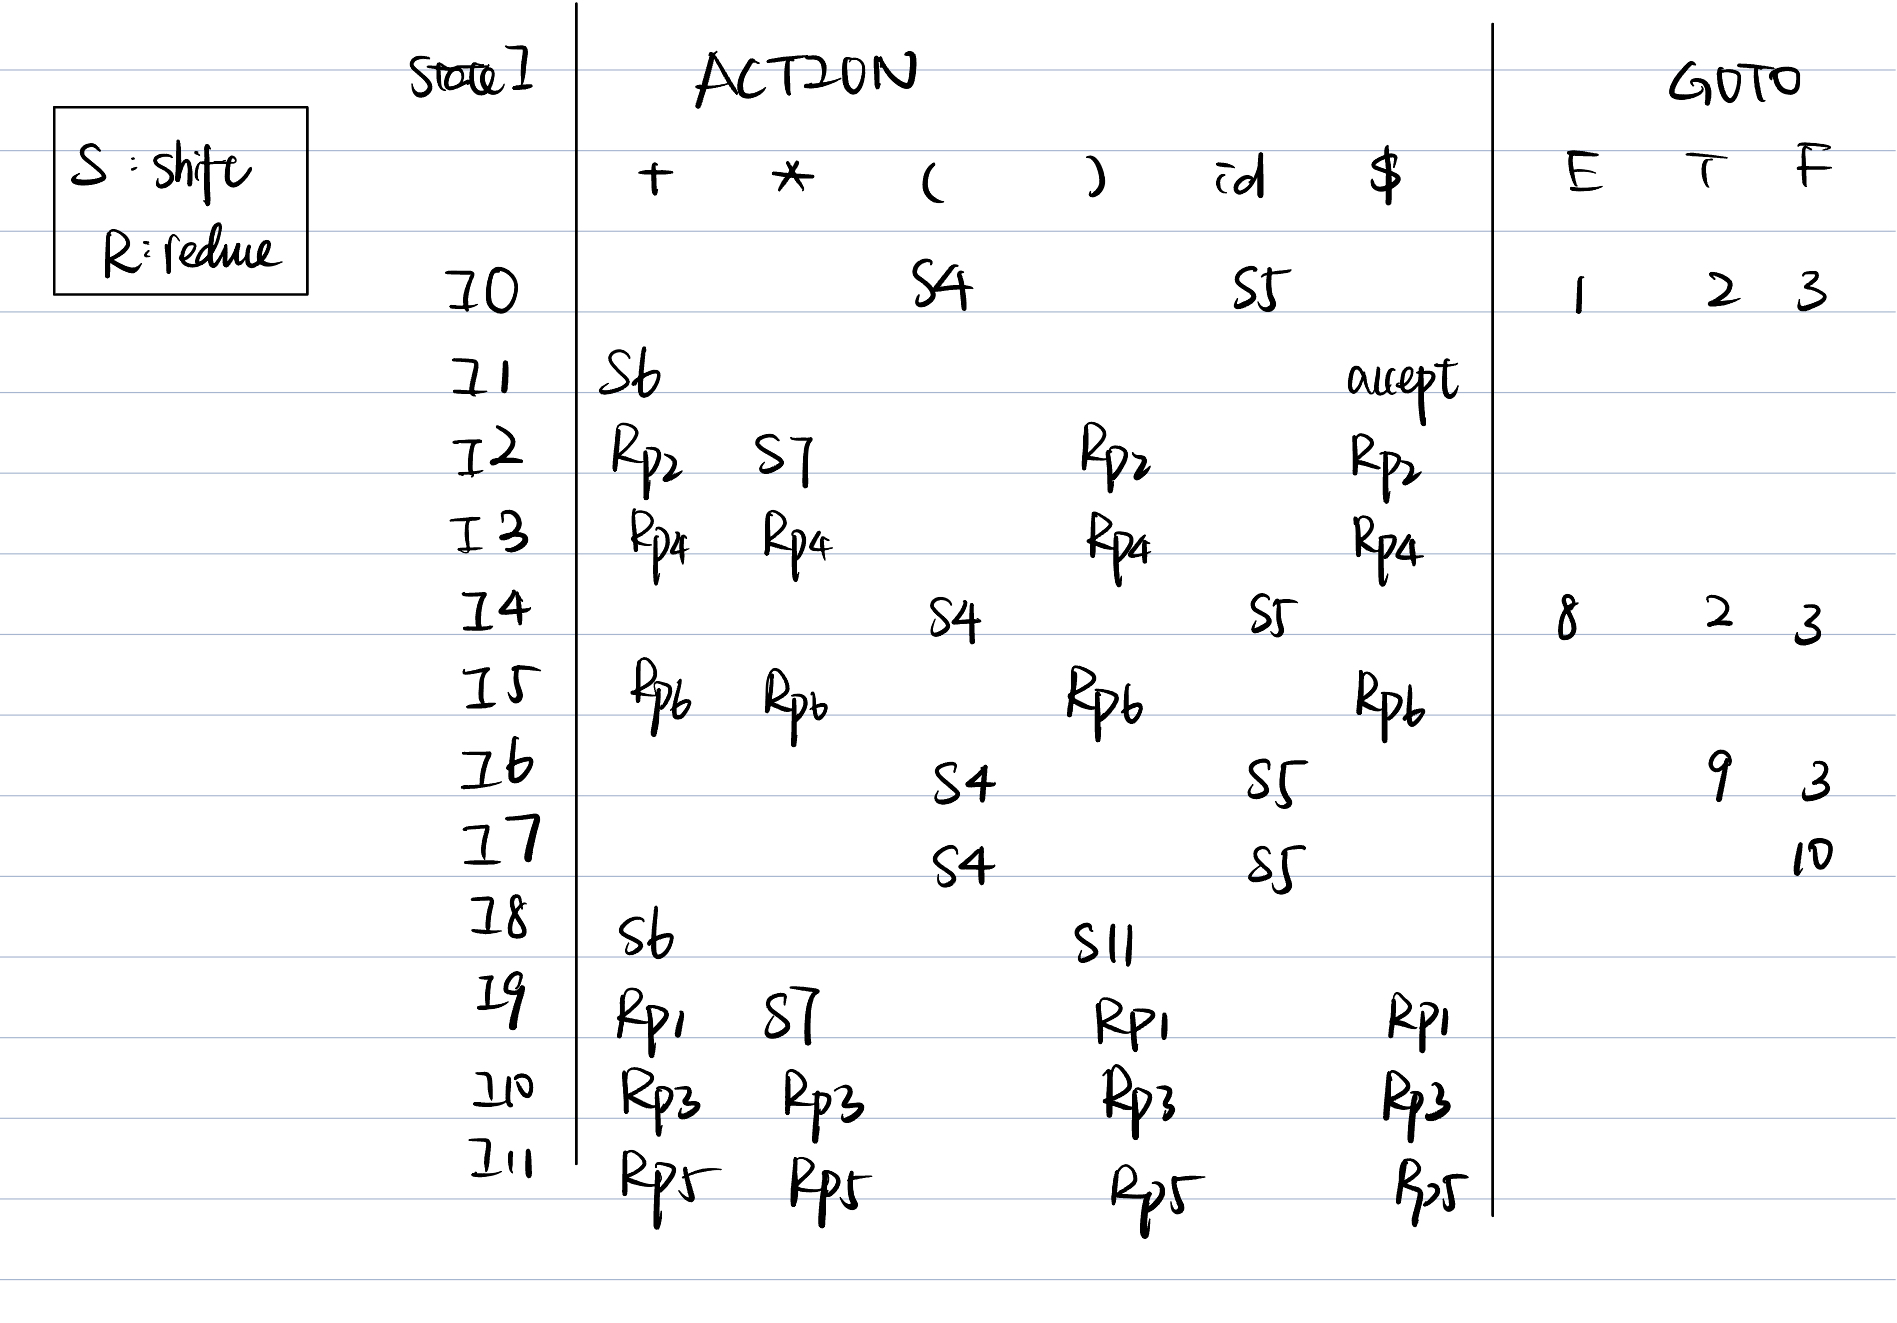 State I ACTION GOTO
S : shift
R : reduce
+ * ( ) id $ E T F
I0 S4 S5 1 2 3
I1 S6 accept
I2 Rp2 S7 Rp2 Rp2
I3 Rp4 Rp4 Rp4 Rp4
I4 S4 S5 8 2 3
I5 Rp6 Rp6 Rp6 Rp6
I6 S4 S5 9 3
I7 S4 S5 10
I8 S6 S11
I9 Rp1 S7 Rp1 Rp1
I10 Rp3 Rp3 Rp3 Rp3
I11 Rp5 Rp5 Rp5 Rp5